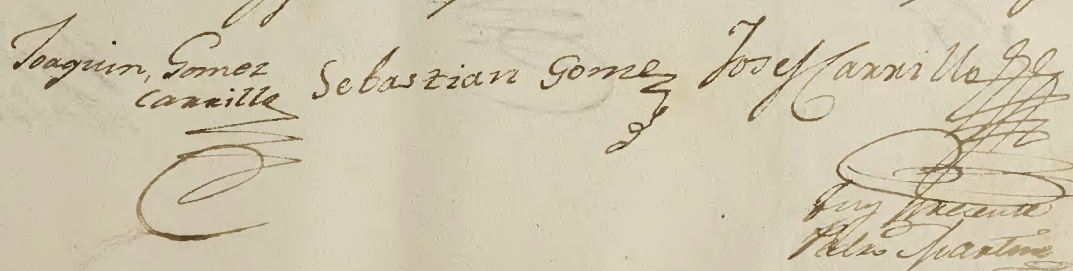 Joaquin, Gomez
Carrillo
Sebastian Gomez
Josef Carrillo
Fuy presente
Pedro Martinez